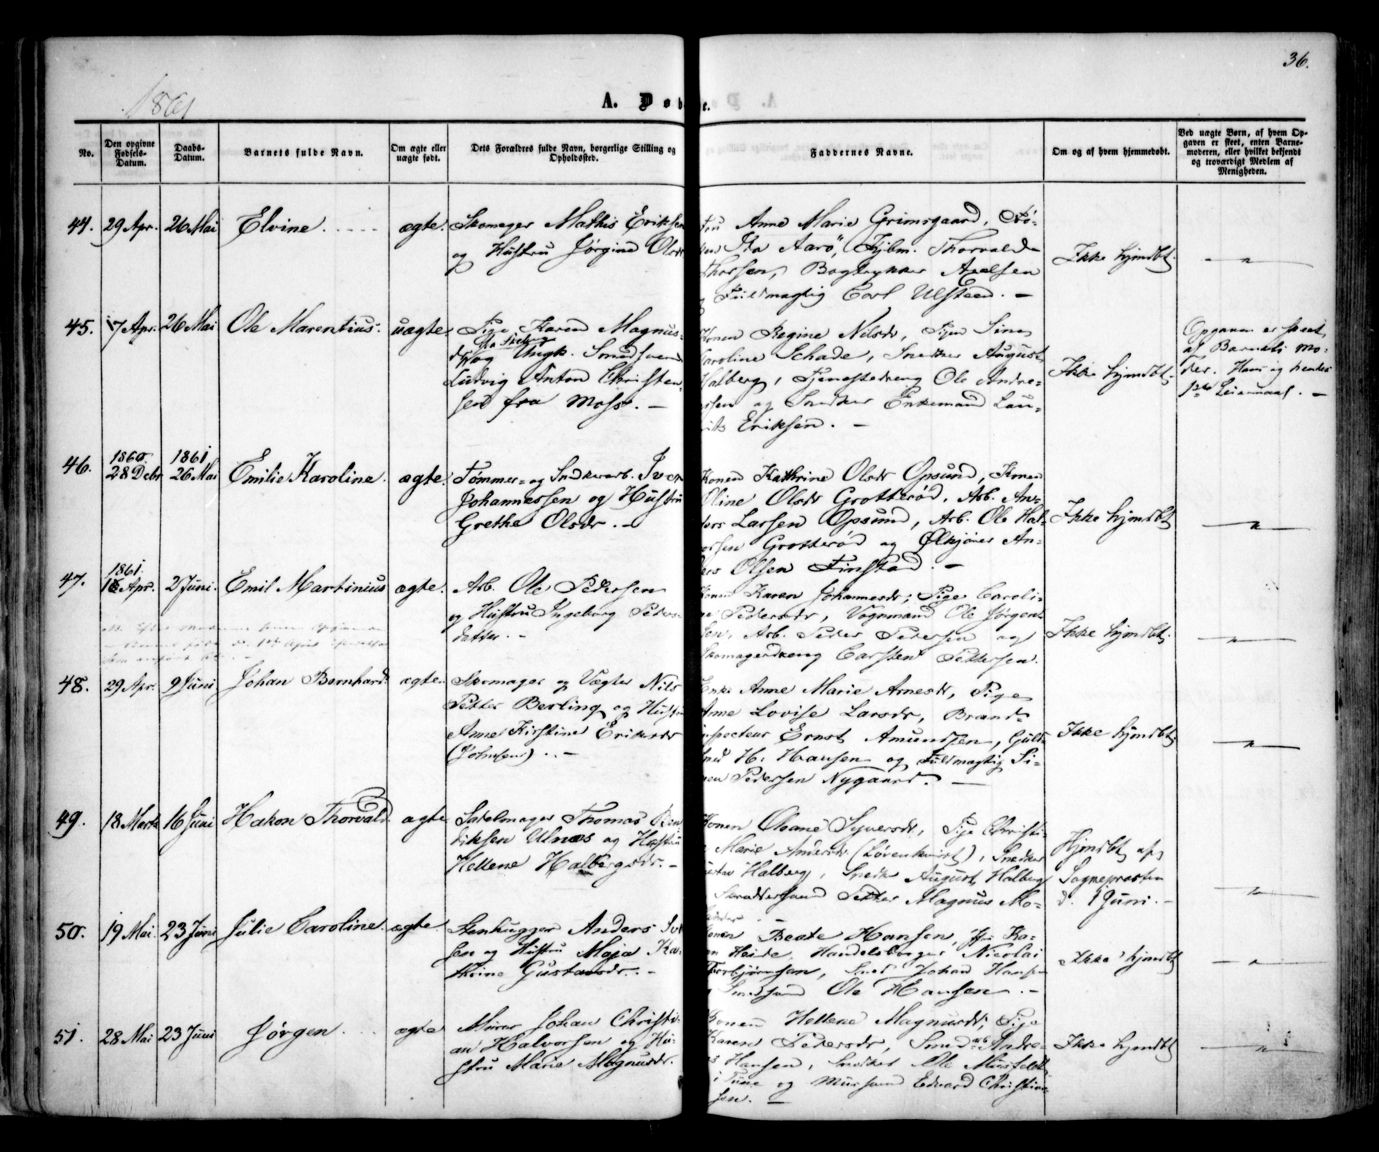 36.
1861
A. Døbte.
No.
Den opgivne Fødsels-Datum.
Daabs-Datum.
Barnets fulde Navn.
Om ægte eller uægte født.
Dets Forældres fulde Navn, borgerlige Stilling og Opholdssted.
Faddernes Navne.
Om og af hvem hjemmedøbt.
Ved uægte Børn, af hvem Opgaven er skeet, enten Barnemoderen, eller hvilket bekjendt og troværdigt Medlem af Menigheden.
44. 29 Apr. 26 Mai Elvine. ægte.
Skomager Mathis Eriksen
og Hustru Jørgine Olsdr
Fru Anne Marie Grimsgaard, Frø-
ken Ida Aarö, Kjbm. Thorvald
Thorsen, Bogtrykker Axelsen
og Fuldmægtig Carl Ulsteen. —
Ikke hjmdbt.
45. 7 Apr. 26 Mai Ole Marentius. uægte.
Pige Karen Magnus-
dr og Ungk. Smedsvend
Ludvig Anton Christen-
sen fra Moss. —
Konen Regine Nilsdr, Pige Sine
Caroline Schade, Snedker August
Halberg, Tjenestedreng Ole Andre-
Eriksen. —
Ikke hjmdbt.
Opgaven er skeet
af Barnets Mo-
der. Hans og hendes
Leiermaal. —
46. 1860 28 Decbr 1861 26 Mai Emilie Karoline. ægte.
Tømmer- og Snedkerarb. Iver
Johannessen og Hustru
Grethe Olsdr. —
Konen Kathrine Olsdr Opsund, Konen
Oline Olsdr Grotterød, Arb. An-
ders Larsen Opsund, Arb. Ole Hal-
vorsen Grotterød og Ølkjører An-
ders Olsen Finstad. —
Ikke hjmdbt
47. 1861. 16 Apr. 2 Juni. Emil Martinius ægte.
Arb. Ole Pedersen
og Hustru Ingeborg Peders-
datter. —
Konen Karen Johannesdr, Pige Caroli-
ne Pedersdr, Vognmand Ole Jørgen-
sen, Arb. Petter Pettersen og
Skomagerdreng Carsten Pettersen.
Ikke hjmdbt.
48. 29 Apr. 9 Juni Johan Bernhard. ægte.
Skomager og Vægter Nils
Petter Berling og Hustru
Anne Kirstine Eriksdr
Enke Anne Marie Arnesdr, Pige
Anne Lovise Larsdr, Brand-
inspecteur Ernst Amundsen, Guld-
smed H. Hansen og Fuldmægtig Si-
men Pedersen Nygaard. —
Ikke hjmdbt
49. 18 Marts 16 Juni Hakon Thorvald ægte
Seilmager Thomas Hen-
riksen Ulnæs og Hustru
Hellene Halbergsdr. —
Konen Oleane Syversdr, Pige Christi-
ne Marie Andersdr (Løvenkvist), Snedker
Gustav Halberg, Snedker August Halberg,
Skræddersvend Petter Magnus Mo-
Hjmdbt af
Sognepresten
d. 1 Juni. —
50. 19 Mai. 23 Juni Julie Caroline. ægte.
Stenhugger Anders
sen og Hustru Maja Ka-
thrine Gustavsdr. —
Konen Beate Hansen,
Heide, Handelsborger Nicolai
Thorbjørnsen, Johan Hansen
og Smedsvend Ole Hansen. —
Ikke hjmdbt
51. 28 Mai 23 Juni Jørgen. ægte
Murer Johan Christi-
an Halvorsen og Hu-
stru Marie Magnusdr.
Konen Hellene Magnusdr, Pige
Karen Pedersdr, Smed Andre-
as Hansen, Snedker Ole Misfeldt
i Tune og Mursvend Edvard Christian-
sen.
Ikke hjmdbt